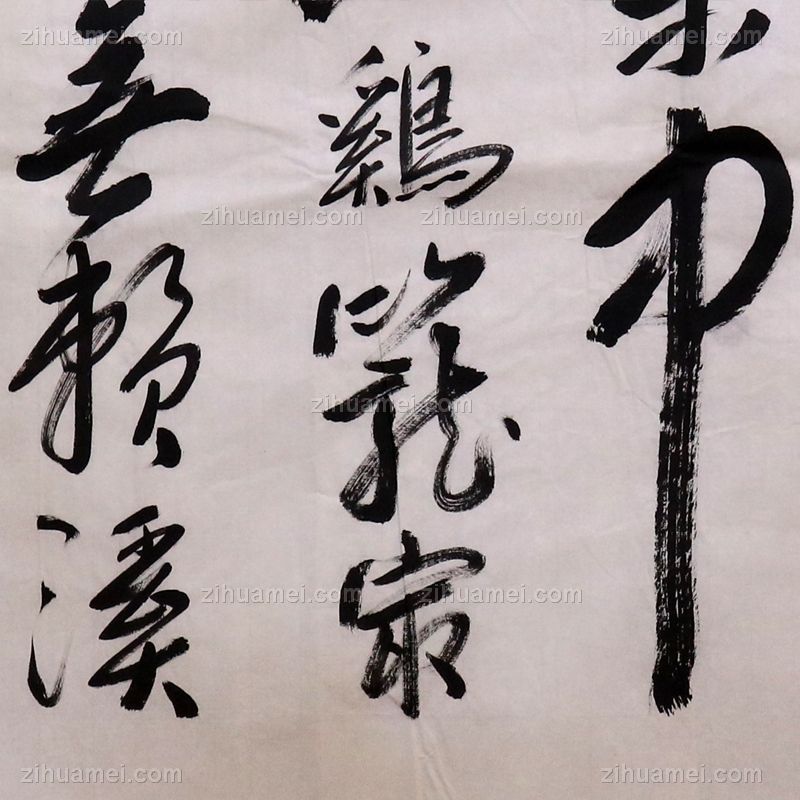 中
鷄籠最
無賴溪
zihuamei.com
zihuamei.com
zihuamei.com
zihuamei.com
zihuamei.com
zihuamei.com
zihuamei.com
zihuamei.com
zihuamei.com
zihuamei.com